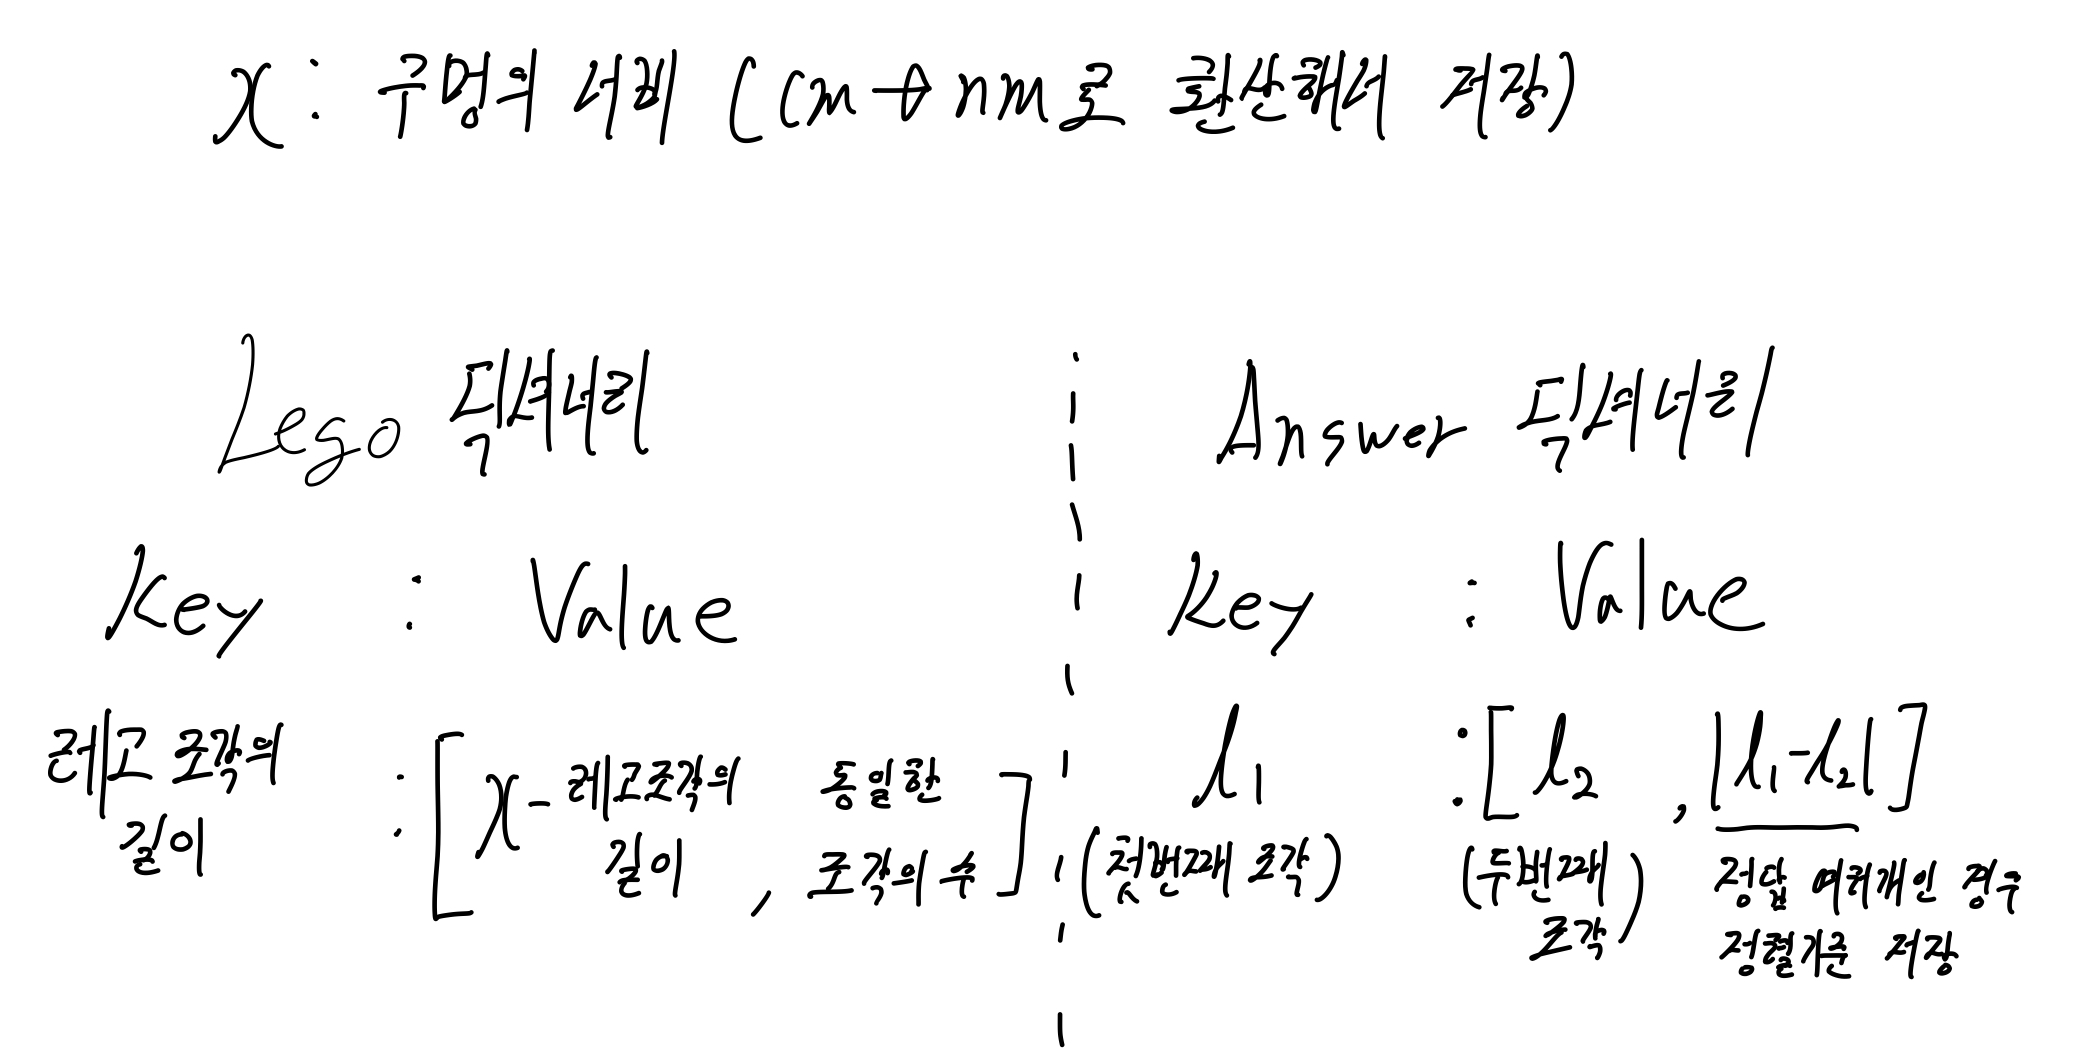 x : 구멍의 너비 (cm → nm로 환산해서 저장)
Lego 딕셔너리
Key : Value
레고 조각의 길이 : [x - 레고조각의 길이, 동일한 조각의 수]
Answer 딕셔너리
Key : Value
l₁ : [l₂, |l₁-l₂|]
(첫번째 조각) (두번째 조각) 정답 여러개인 경우
정렬기준 저장